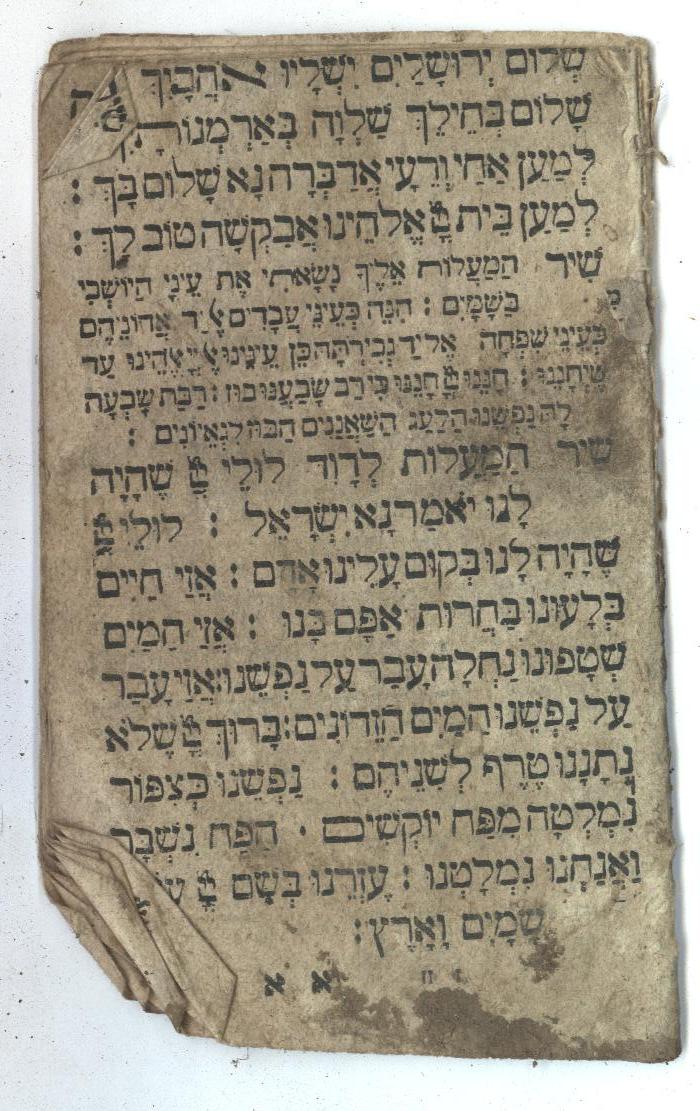 שְׁלוֹם יְרוּשָׁלַיִם יִשְׁלָיוּ אֹהֲבָיִךְ
שָׁלוֹם בְּחֵילֵךְ שַׁלְוָה בְּאַרְמְנוֹתָיִךְ
לְמַעַן אַחַי וְרֵעָי אֲדַבְּרָה נָא שָׁלוֹם בָּךְ :
לְמַעַן בֵּית יְיָ אֱלֹהֵינוּ אֲבַקְשָׁה טוֹב לָךְ :
שִׁיר הַמַּעֲלוֹת אֵלֶיךָ נָשָׂאתִי אֶת עֵינַי הַיּוֹשְׁבִי
בַּשָּׁמָיִם : הִנֵּה כְעֵינֵי עֲבָדִים אֶל יַד אֲדוֹנֵיהֶם
כְּעֵינֵי שִׁפְחָה אֶל יַד גְּבִירְתָּהּ כֵּן עֵינֵינוּ אֶל יְיָ אֱלֹהֵינוּ עַד
שֶׁיְּחָנֵּנוּ : חָנֵּנוּ יְיָ חָנֵּנוּ כִּי רַב שָׂבַעְנוּ בוּז : רַבַּת שָׂבְעָה
לָהּ נַפְשֵׁנוּ הַלַּעַג הַשַּׁאֲנַנִּים הַבּוּז לִגְאֵיוֹנִים :
שִׁיר הַמַּעֲלוֹת לְדָוִד לוּלֵי יְיָ שֶׁהָיָה
לָנוּ יֹאמַר נָא יִשְׂרָאֵל : לוּלֵי יְיָ
שֶׁהָיָה לָנוּ בְּקוּם עָלֵינוּ אָדָם : אֲזַי חַיִּים
בְּלָעוּנוּ בַּחֲרוֹת אַפָּם בָּנוּ : אֲזַי הַמַּיִם
שְׁטָפוּנוּ נַחְלָה עָבַר עַל נַפְשֵׁנוּ : אֲזַי עָבַר
עַל נַפְשֵׁנוּ הַמַּיִם הַזֵּדוֹנִים : בָּרוּךְ יְיָ שֶׁלֹּא
נְתָנָנוּ טֶרֶף לְשִׁנֵּיהֶם : נַפְשֵׁנוּ כְּצִפּוֹר
נִמְלְטָה מִפַּח יוֹקְשִׁים . הַפַּח נִשְׁבָּר
וַאֲנַחְנוּ נִמְלָטְנוּ : עֶזְרֵנוּ בְּשֵׁם יְיָ
שָׁמַיִם וָאָרֶץ :
א א